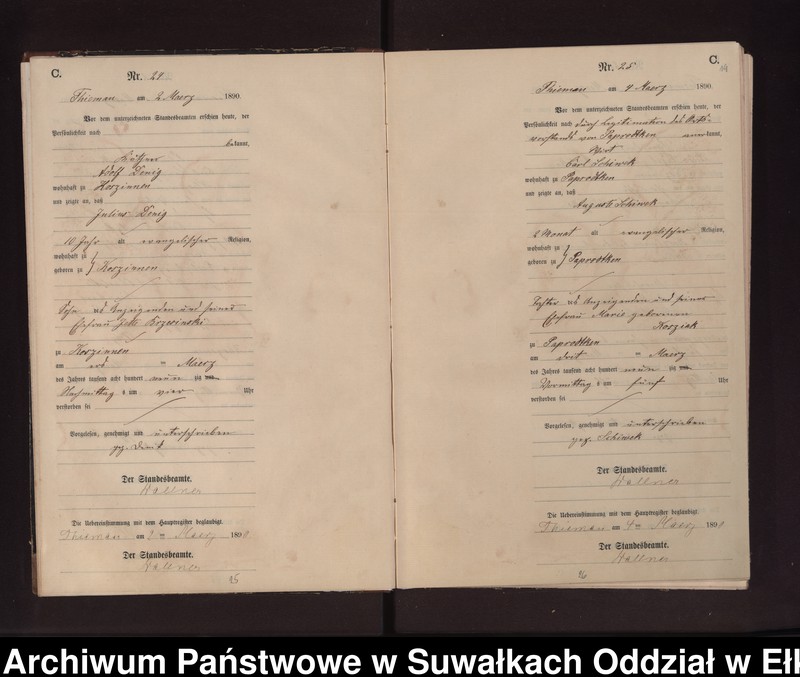 C.
Nr. 24
Thieman am 2 Maerz 1890.
Vor dem unterzeichneten Standesbeamten erschien heute, der
Persönlichkeit nach
bekannt,
Adolf
wohnhaft zu Korzinnen
und zeigte an, daß
Julius
10 Jahr alt evangelischer Religion,
wohnhaft zu
geboren zu Korzinnen
Sohn des Anzeigenden und seiner
Ehefrau
zu Korzinnen
am Maerz
des Jahres tausend acht hundert neun zig
Nachmittag s um vier Uhr
verstorben sei
Vorgelesen, genehmigt und unterschrieben
gez.
Der Standesbeamte.
Die Uebereinstimmung mit dem Hauptregister beglaubigt.
Thieman am 2 ten Maerz 1890
Der Standesbeamte.
C.
Nr. 25
Thieman am 4 Maerz 1890.
Vor dem unterzeichneten Standesbeamten erschien heute, der
Persönlichkeit nach durch Legitimation des Orts-
vorstands von Paprodtken anerkannt,
Wirt
Carl Schiwek
wohnhaft zu Paprodtken
und zeigte an, daß
Auguste Schiwek
2 Monat alt evangelischer Religion,
wohnhaft zu
geboren zu Paprodtken
Tochter des Anzeigenden und seiner
Ehefrau Marie geborenen
zu Paprodtken
am Maerz
des Jahres tausend acht hundert neun zig
Vormittag s um fünf Uhr
verstorben sei
Vorgelesen, genehmigt und unterschrieben
gez. Schiwek
Der Standesbeamte.
Die Uebereinstimmung mit dem Hauptregister beglaubigt.
Thieman am 4 ten Maerz 1890
Der Standesbeamte.
Archiwum Państwowe w Suwałkach Oddział w Ełk